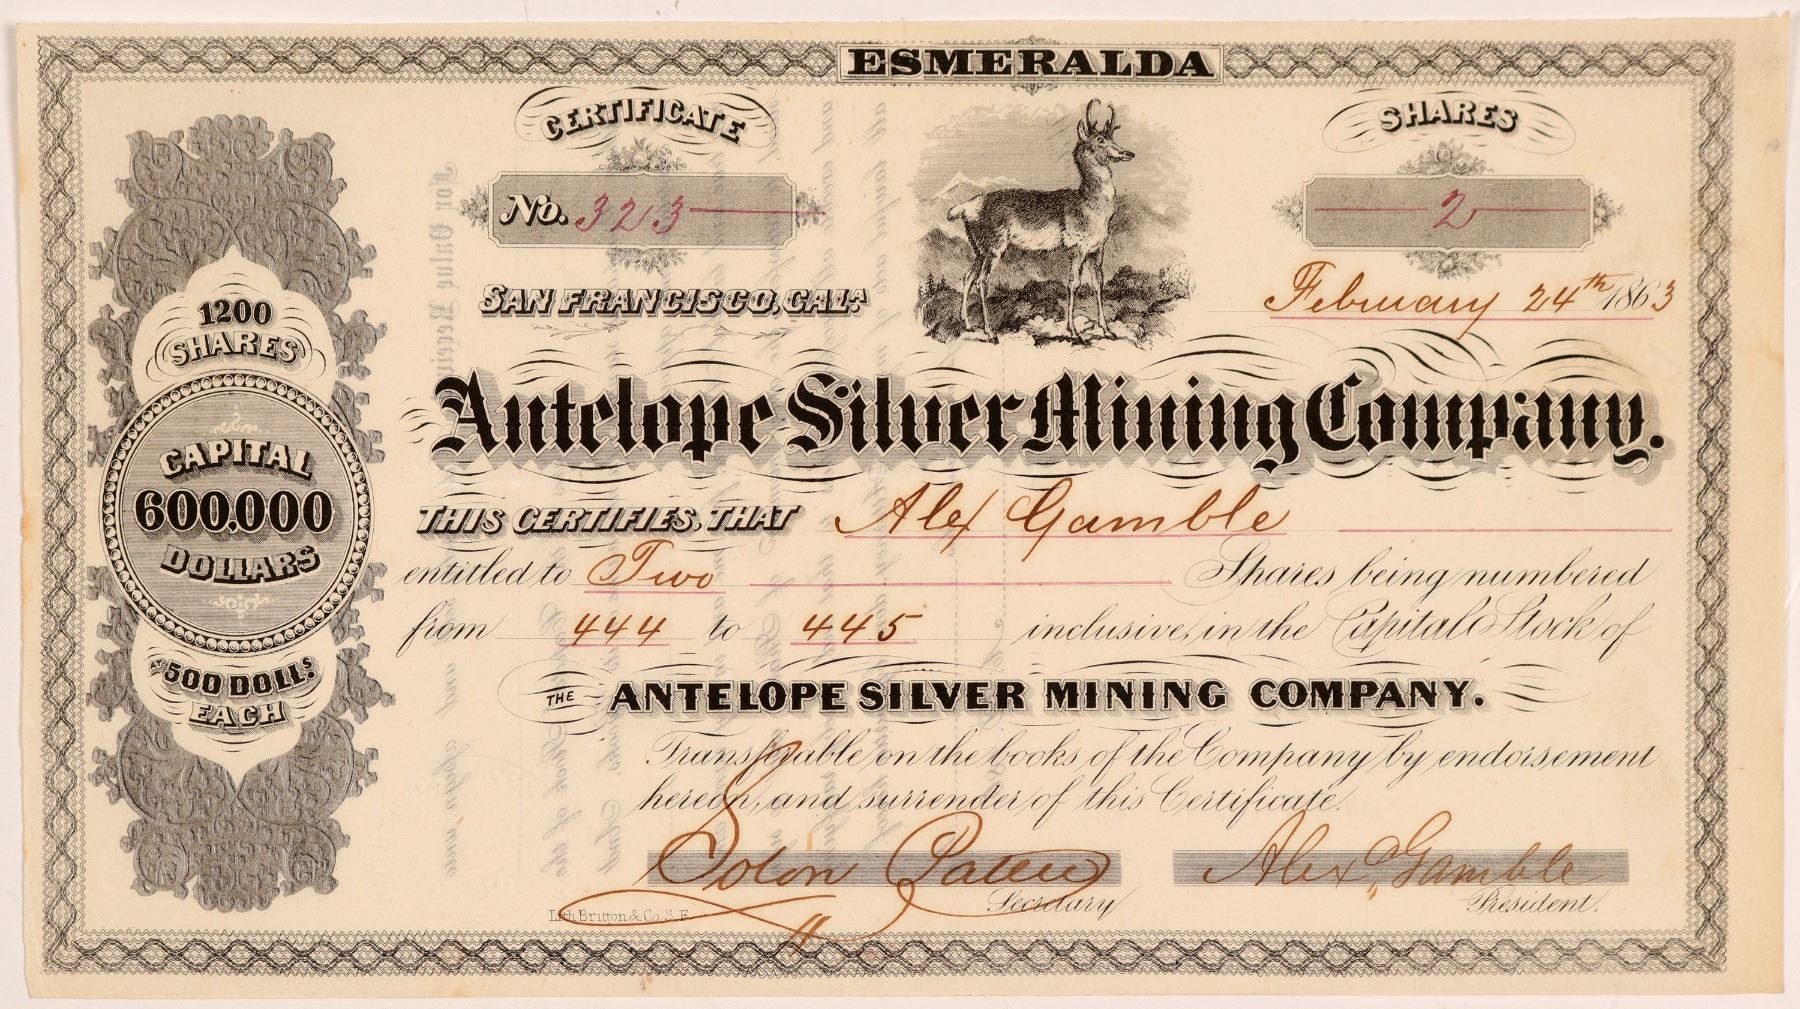 ESMERALDA
CERTIFICATE
No. 323
SHARES
2
SAN FRANCISCO, CALA.
February 24th 1863
1200
SHARES
CAPITAL
600,000
DOLLARS
AT 500 DOLLS.
EACH
Antelope Silver Mining Company.
THIS CERTIFIES, THAT Alex Gamble
entitled to Two Shares being numbered
from 444 to 445 inclusive, in the Capital Stock of
THE ANTELOPE SILVER MINING COMPANY.
Transferable on the books of the Company by endorsement
hereon, and surrender of this Certificate.
Solon Alex Gamble
Secretary President.
Lith Britton & Co. S.F.